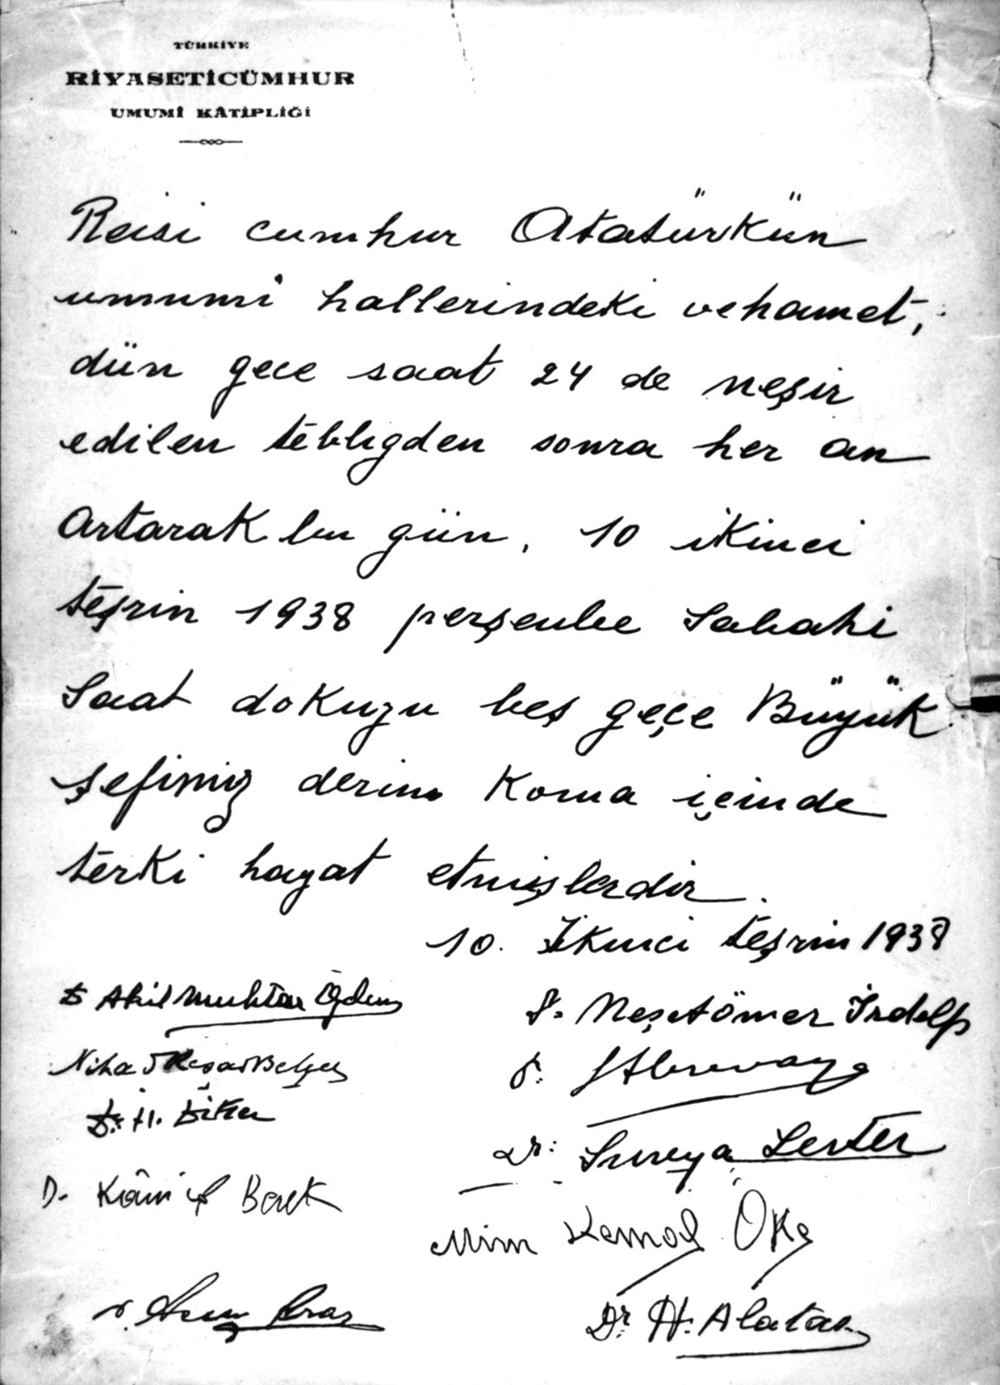 TÜRKİYE
RİYASETİCÜMHUR
UMUMÎ KÂTİPLİĞİ
Reisi cumhur Atatürkün
umumî hallerindeki vehamet,
dün gece saat 24 de neşir
edilen tebligden sonra her an
artarak bu gün, 10 ikinci
teşrin 1938 perşenbe sabahi
saat dokuzu beş geçe Büyük
şefimiz derin koma içinde
terki hayat etmişlerdir.
10. İkinci teşrin 1938
Dr Akil Muhtar Özden
Dr. Neşetömer İrdelp
Nihad Reşad Belger
Dr.
Dr. H. Diker
Dr: Sureya Serter
D. Kâmil Berk
Mim Kemal Öke
Dr. Aras
Dr. H. Alataş